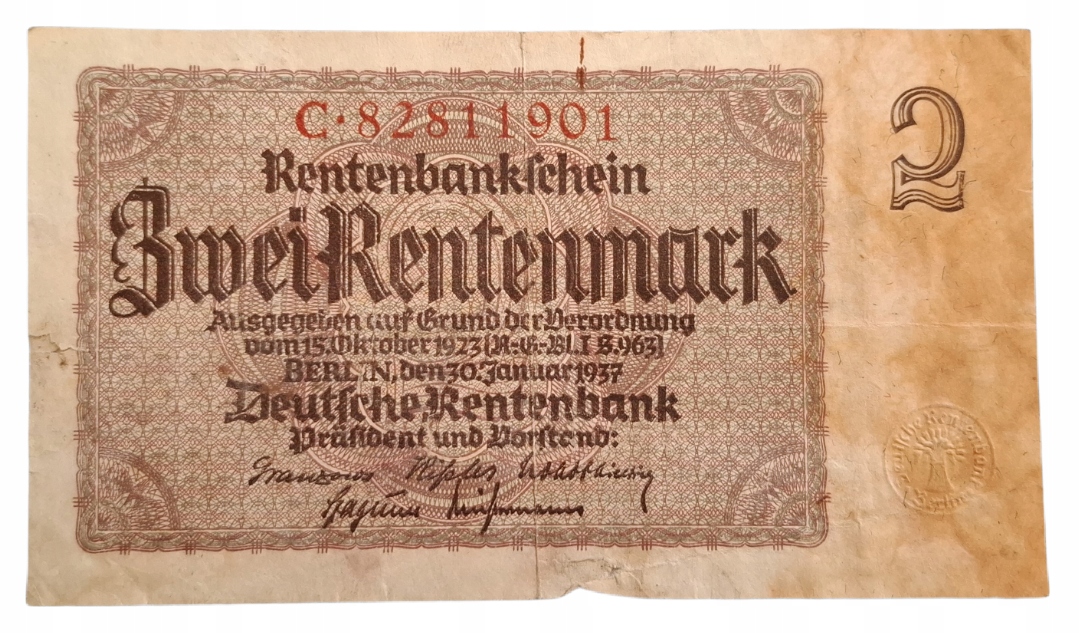 C·82811901
Rentenbankſchein
Zwei Rentenmark
Ausgegeben auf Grund der Verordnung
vom 15. Oktober 1923 (R.-G.-Bl. I S. 963)
BERLIN, den 30. Januar 1937
Deutſche Rentenbank
Präſident und Vorſtand:
2
Deutsche Rentenbank
Berlin